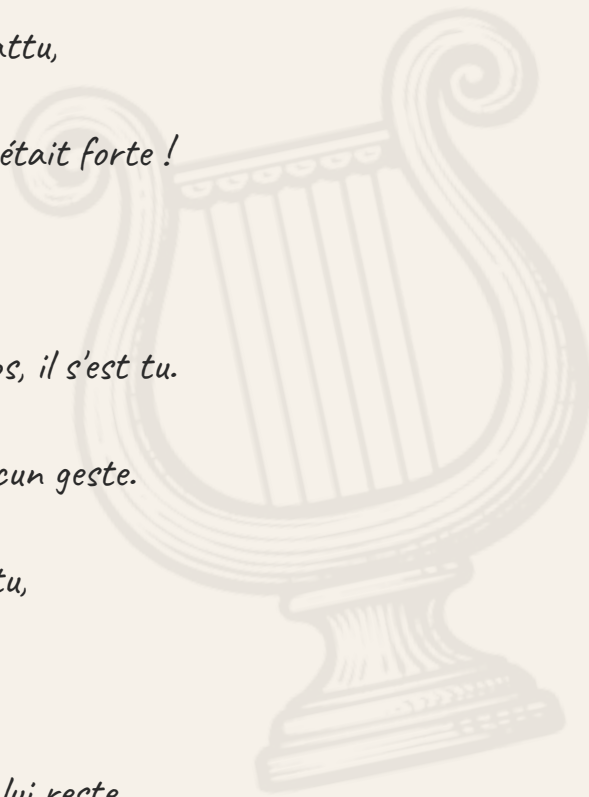 attu,
était forte !
os, il s'est tu.
cun geste.
tu,
lui reste